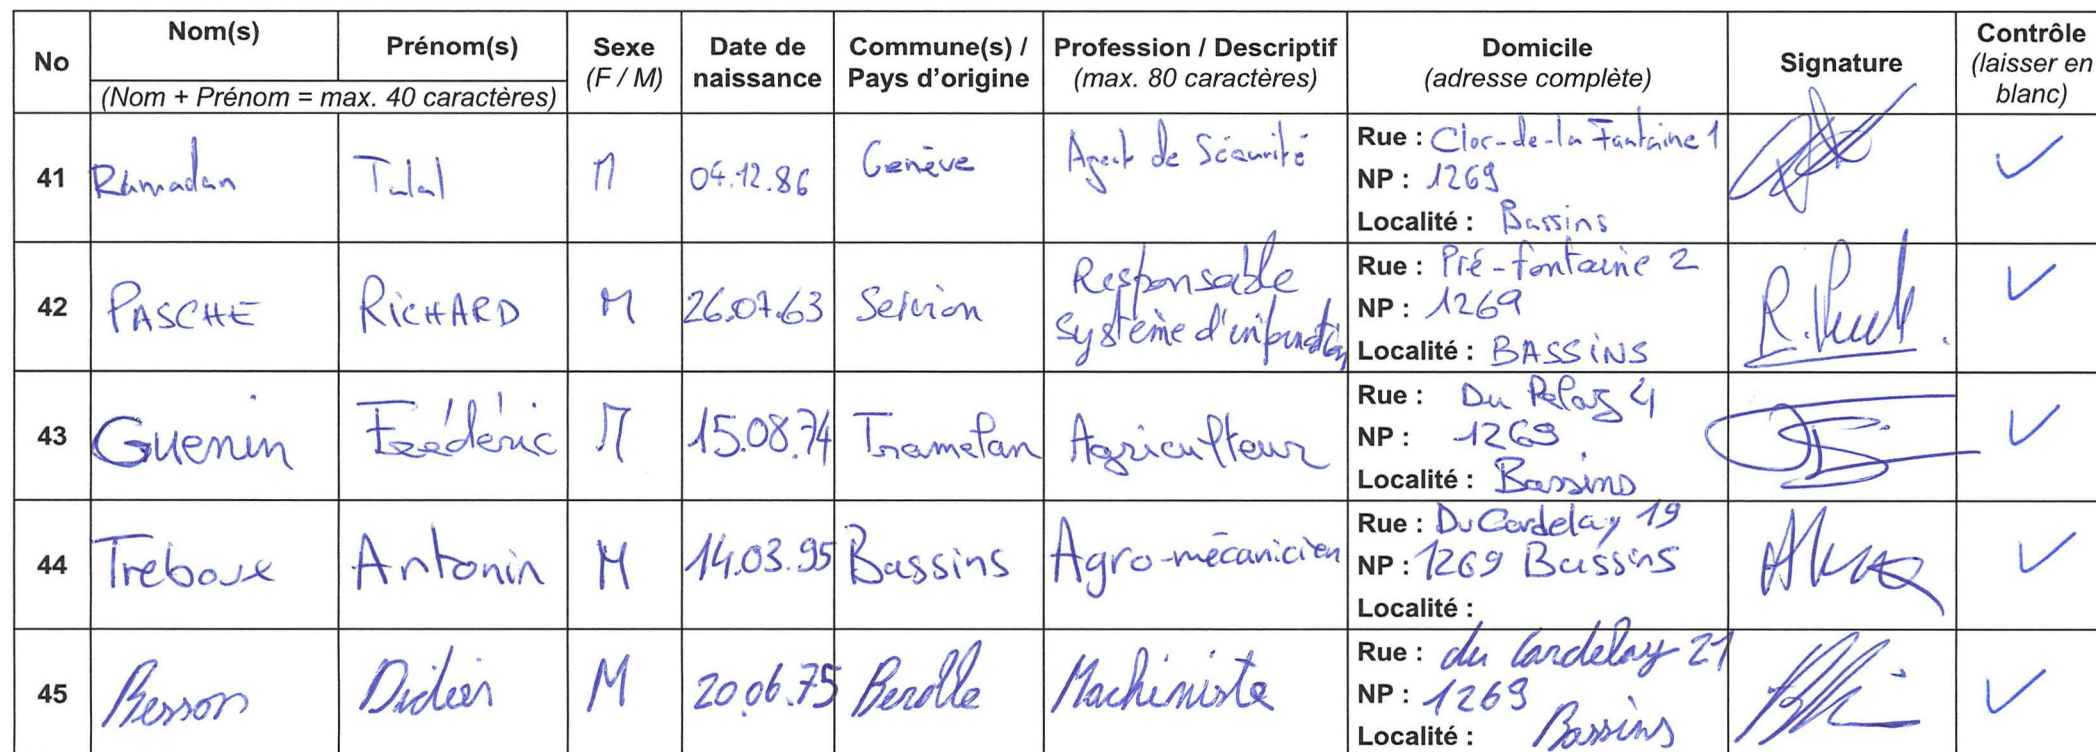 No Nom(s) Prénom(s) Sexe (F / M) Date de naissance Commune(s) / Pays d'origine Profession / Descriptif (max. 80 caractères) Domicile (adresse complète) Signature Contrôle (laisser en blanc)
(Nom + Prénom = max. 40 caractères)
41 Ramadan Talal M 04.12.86 Genève Agent de Sécurité Rue : Clos-de-la Fontaine 1
NP : 1269
Localité : Bassins
42 PASCHE RICHARD M 26.07.63 Servion Responsable système d'information Rue : Pré-fontaine 2
NP : 1269
Localité : BASSINS
43 Guenin Frédéric M 15.08.74 Tramelan Agriculteur Rue : Du Pelaz 4
NP : 1269
Localité : Bassins
44 Treboux Antonin M 14.03.95 Bassins Agro-mécanicien Rue : Du Cardelay 19
NP : 1269 Bassins
Localité :
45 Besson Didier M 20.06.75 Berolle Machiniste Rue : du Cardelay 21
NP : 1269
Localité : Bassins